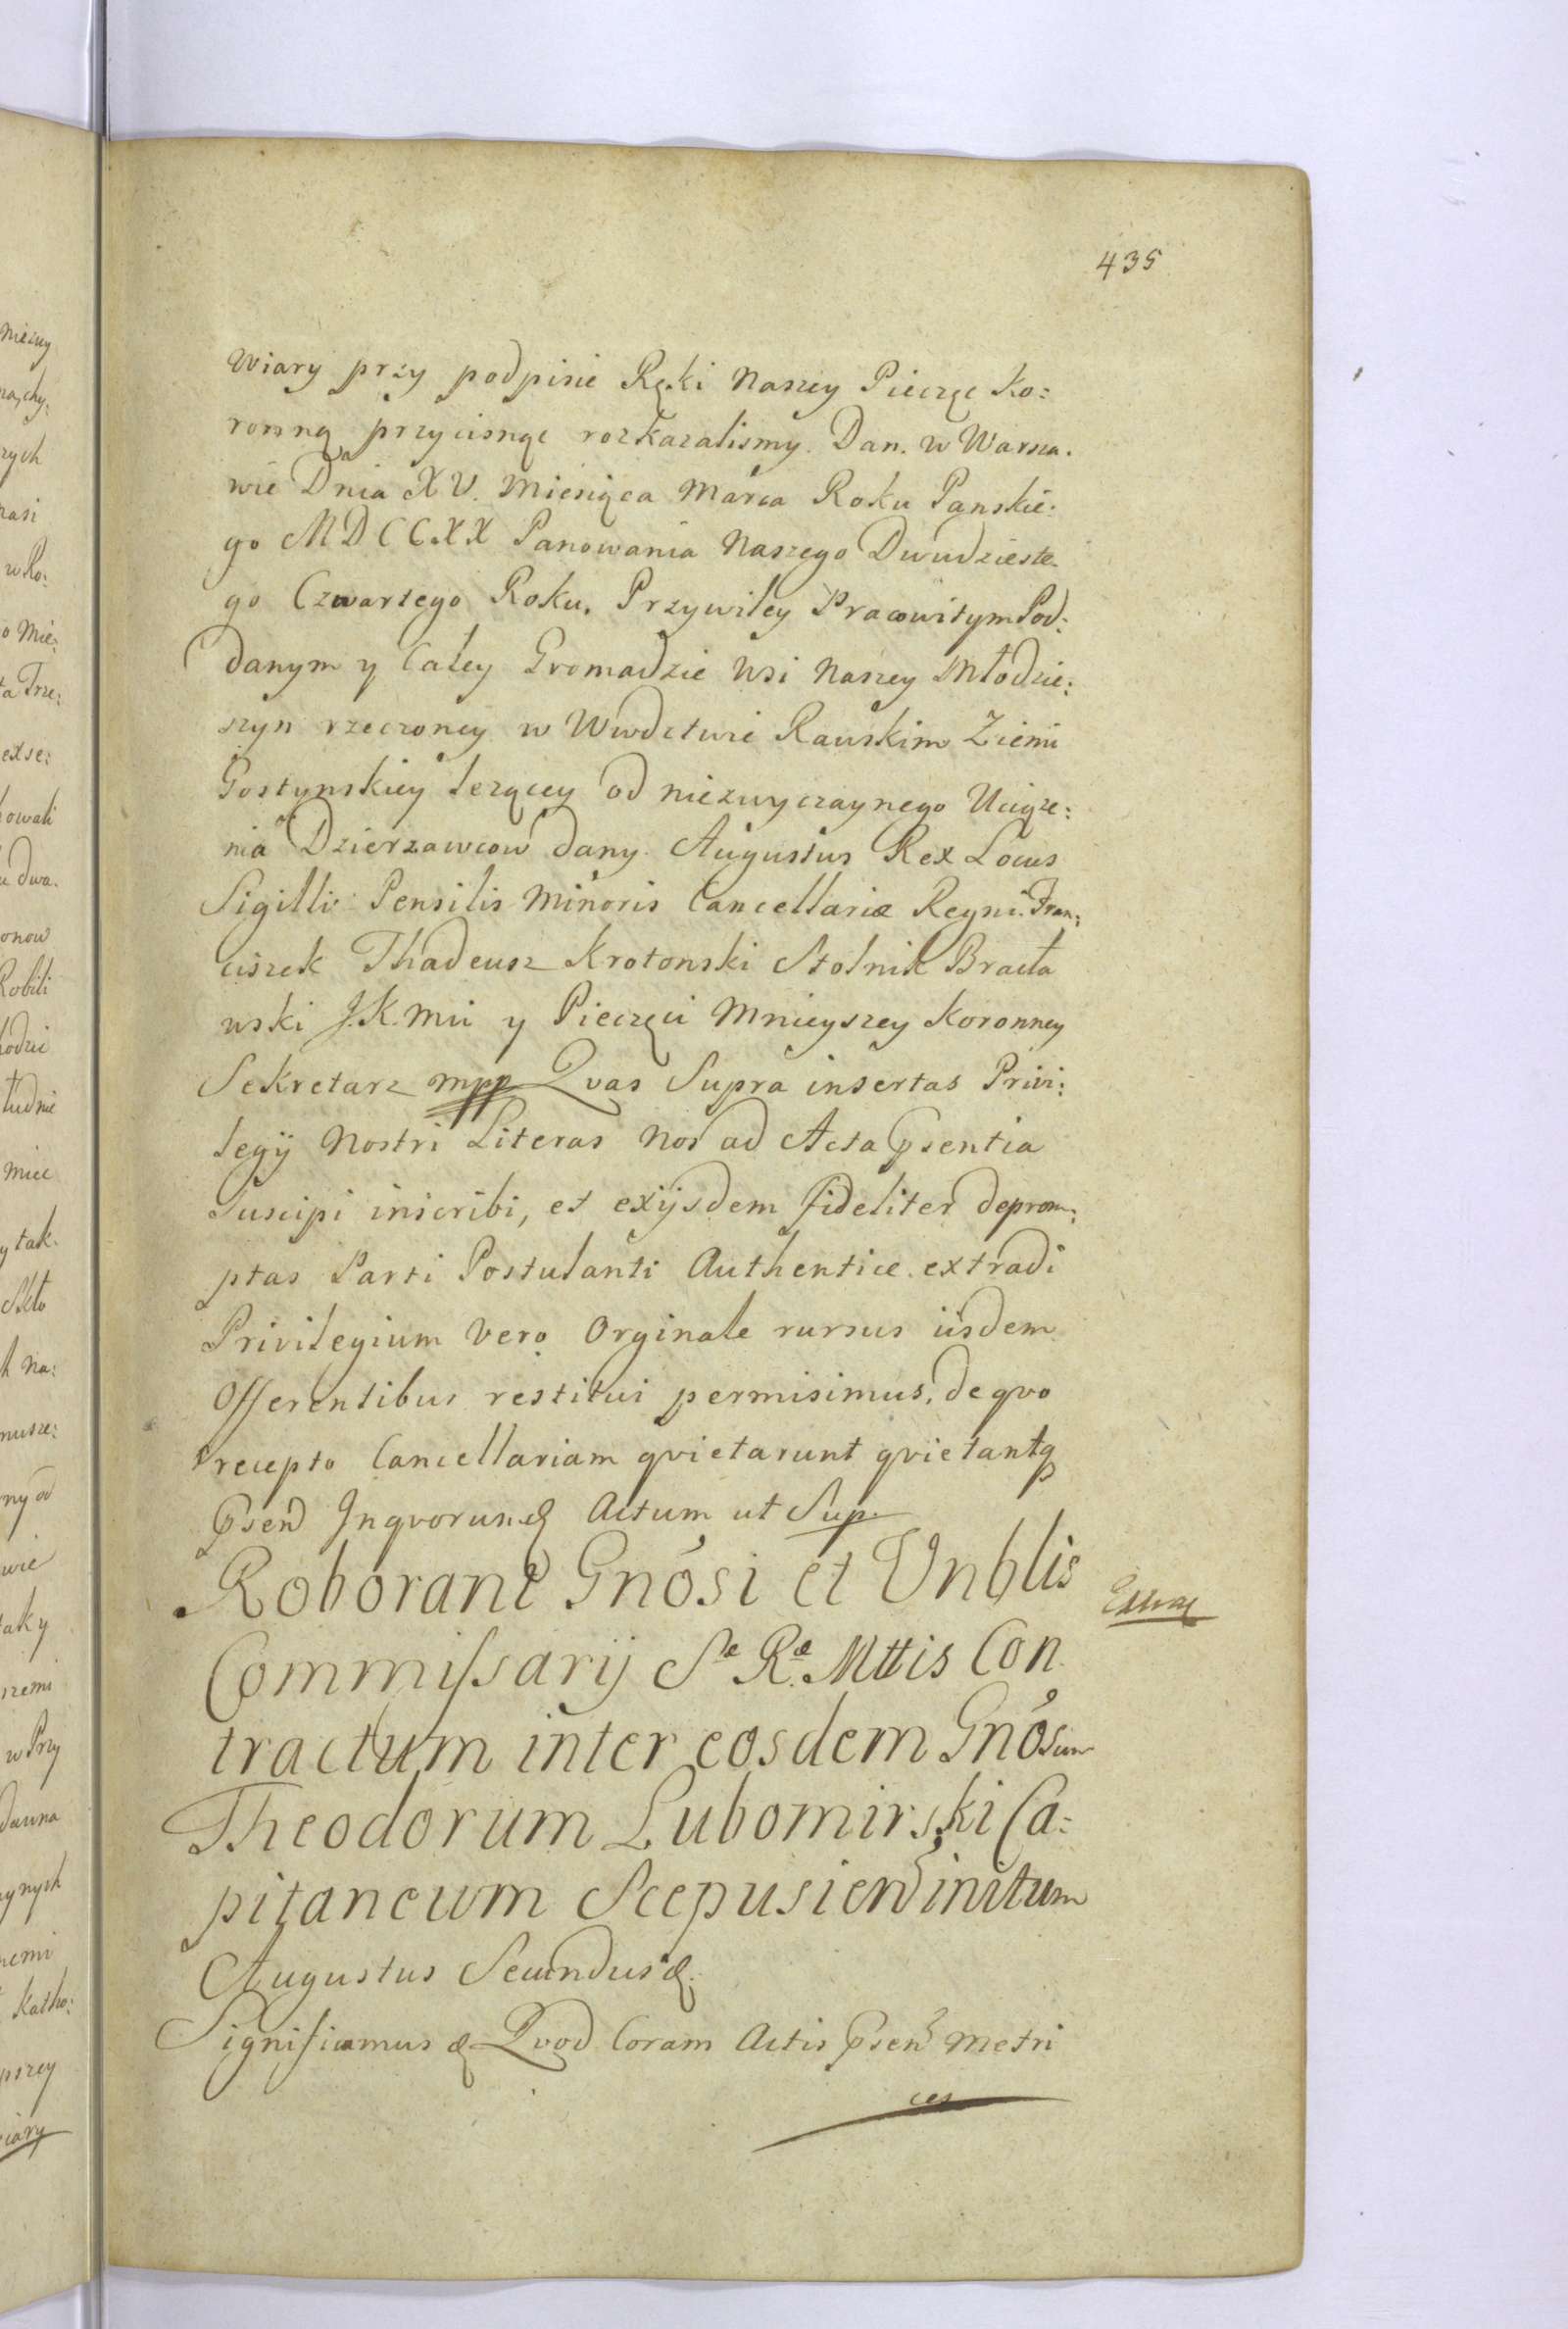 435
Wiary przy podpisie Ręki Naszey Pieczęc Ko:
ronną przycisnąc rozkazalismy. Dan. w Warsza.
wie Dnia XV. Miesiąca Marca Roku Panskie:
go MDCCXX Panowania Naszego Dwudzieste
go Czwartego Roku. Przywiley Pracowitym Pod:
danym y Całey Gromadzie Wsi Naszey Młodzie:
szyn rzeczoney w Wwdctwie Rawskim Ziemi
Gostynskiey lezącey od niezwyczaynego Uciąże:
nia Dzierzawcow dany. Augustus Rex Locus
Sigilli Pensilis Minoris Cancellariæ Regni. Fran:
ciszek Thadeusz Krotonski Stolnik Bracła
wski J.K.Mci y Pieczęci Mnieyszey Koronney
Sekretarz mpp Qvas Supra insertas Privi:
legij Nostri Literas Nos ad Acta Psentia
Suscipi inscribi, et exijsdem fideliter deprom:
ptas Parti Postulanti Authentice extradi
Privilegium Vero Orginale rursus iisdem
Offerentibus restitui permisimus, de qvo
recepto Cancellariam qvietarunt qvietantq
Psend Inqvorum & Actum ut Sup.
Roborant Gnosi et Vnblis
Commissarij Sæ Ræ Mttis Con
tractum inter eosdem Gnosum
Theodorum Lubomirski Ca:
pitaneum Scepusien initum
Augustus Secundus &.
Significamus & Qvod Coram Actis Psen Metri
ces